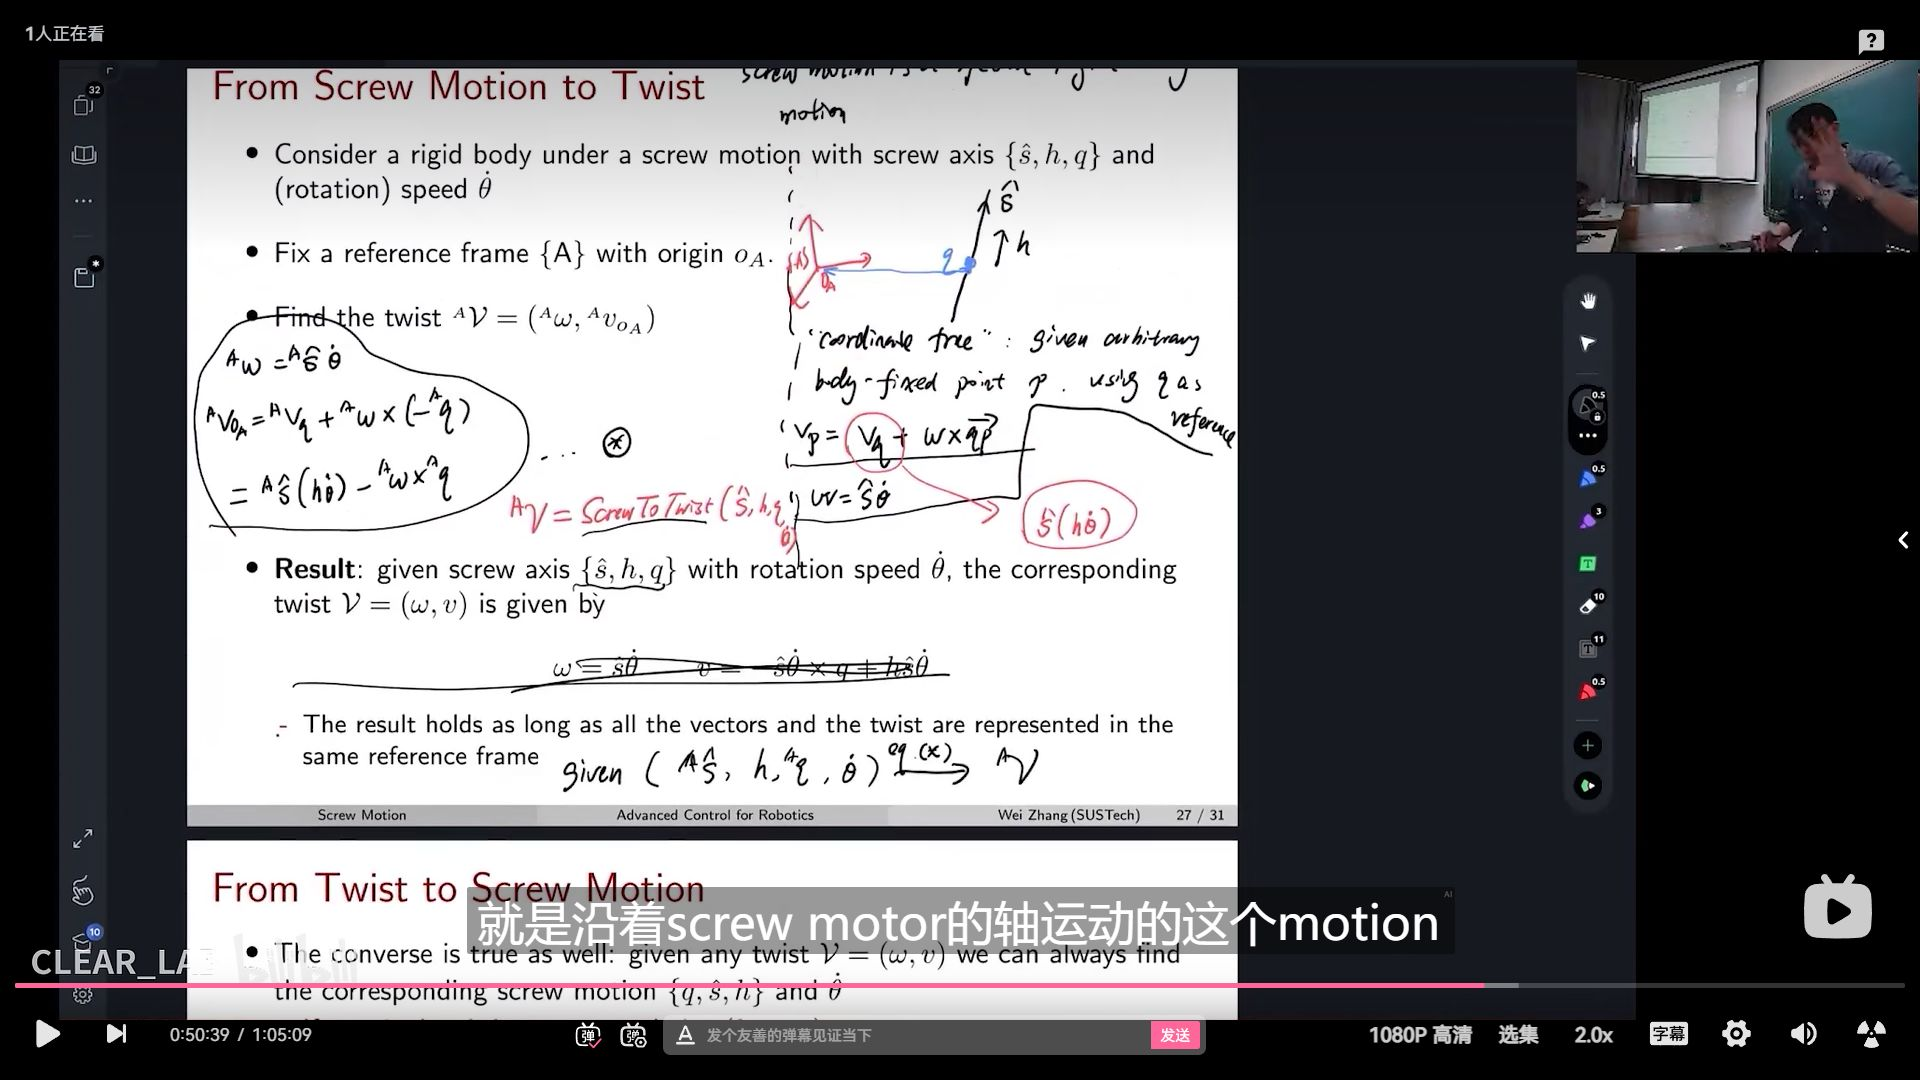 1人正在看
32
From Screw Motion to Twist
motion
• Consider a rigid body under a screw motion with screw axis {ŝ, h, q} and
(rotation) speed θ̇
ŝ
h
• Fix a reference frame {A} with origin o_A.
{A}
O_A
q
• Find the twist ᴬ𝒱 = (ᴬω, ᴬv_{o_A})
ᴬω = ᴬŝ θ̇
ᴬV_{O_A} = ᴬV_q + ᴬω × (-ᴬq)
= ᴬŝ(hθ̇) - ᴬω × ᴬq
... ⊛
"coordinate free" : given arbitrary
body-fixed point p. using q as
reference
V_p = V_q + ω × qp
ω = ŝθ̇
ŝ(hθ̇)
ᴬ𝒱 = ScrewToTwist(ŝ, h, q,
θ̇)
• Result: given screw axis {ŝ, h, q} with rotation speed θ̇, the corresponding
twist 𝒱 = (ω, v) is given by
ω = ŝθ̇ v = -ŝθ̇ × q + hŝθ̇
- The result holds as long as all the vectors and the twist are represented in the
same reference frame
given (ᴬŝ, h, ᴬq, θ̇) eq.(*) → ᴬ𝒱
Screw Motion Advanced Control for Robotics Wei Zhang (SUSTech) 27 / 31
From Twist to Screw Motion
就是沿着screw motor的轴运动的这个motion
AI
• The converse is true as well: given any twist 𝒱 = (ω, v) we can always find
the corresponding screw motion {q, ŝ, h} and θ̇
CLEAR_LA
10
0.5
0.5
3
T
10
11
T
0.5
0:50:39 / 1:05:09
弹
弹
A 发个友善的弹幕见证当下
发送
1080P 高清
选集
2.0x
字幕